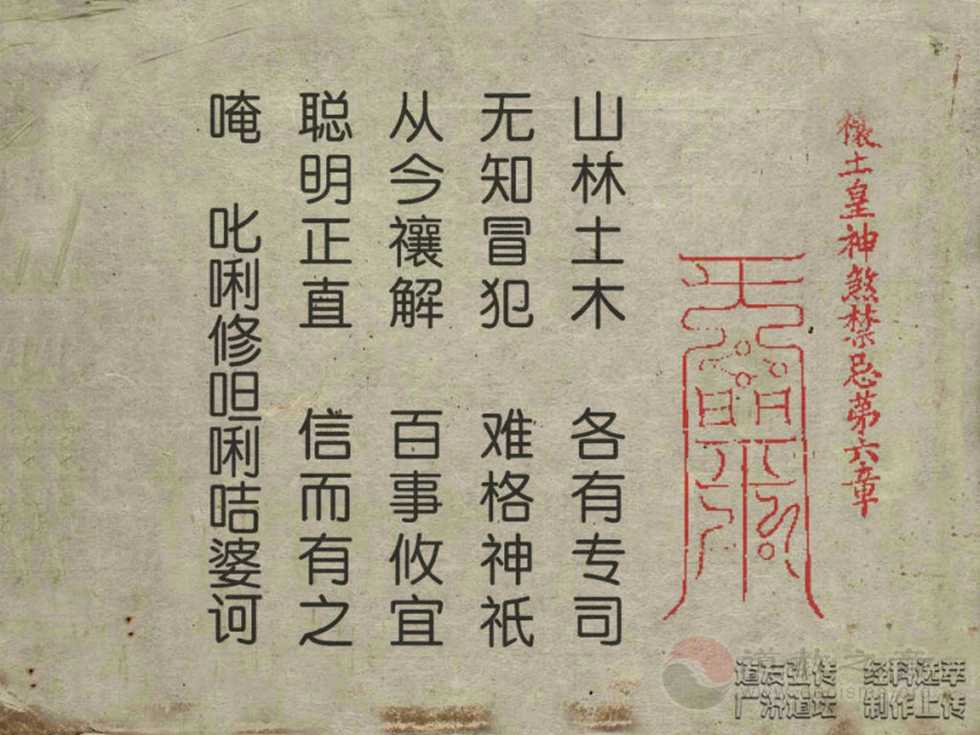 禳土皇神煞禁忌第六章
山林土木 各有专司
无知冒犯 难格神祇
从今禳解 百事攸宜
聪明正直 信而有之
唵 叱唎修呾唎咭婆诃
道友弘传 经科选萃
广洪道坛 制作上传